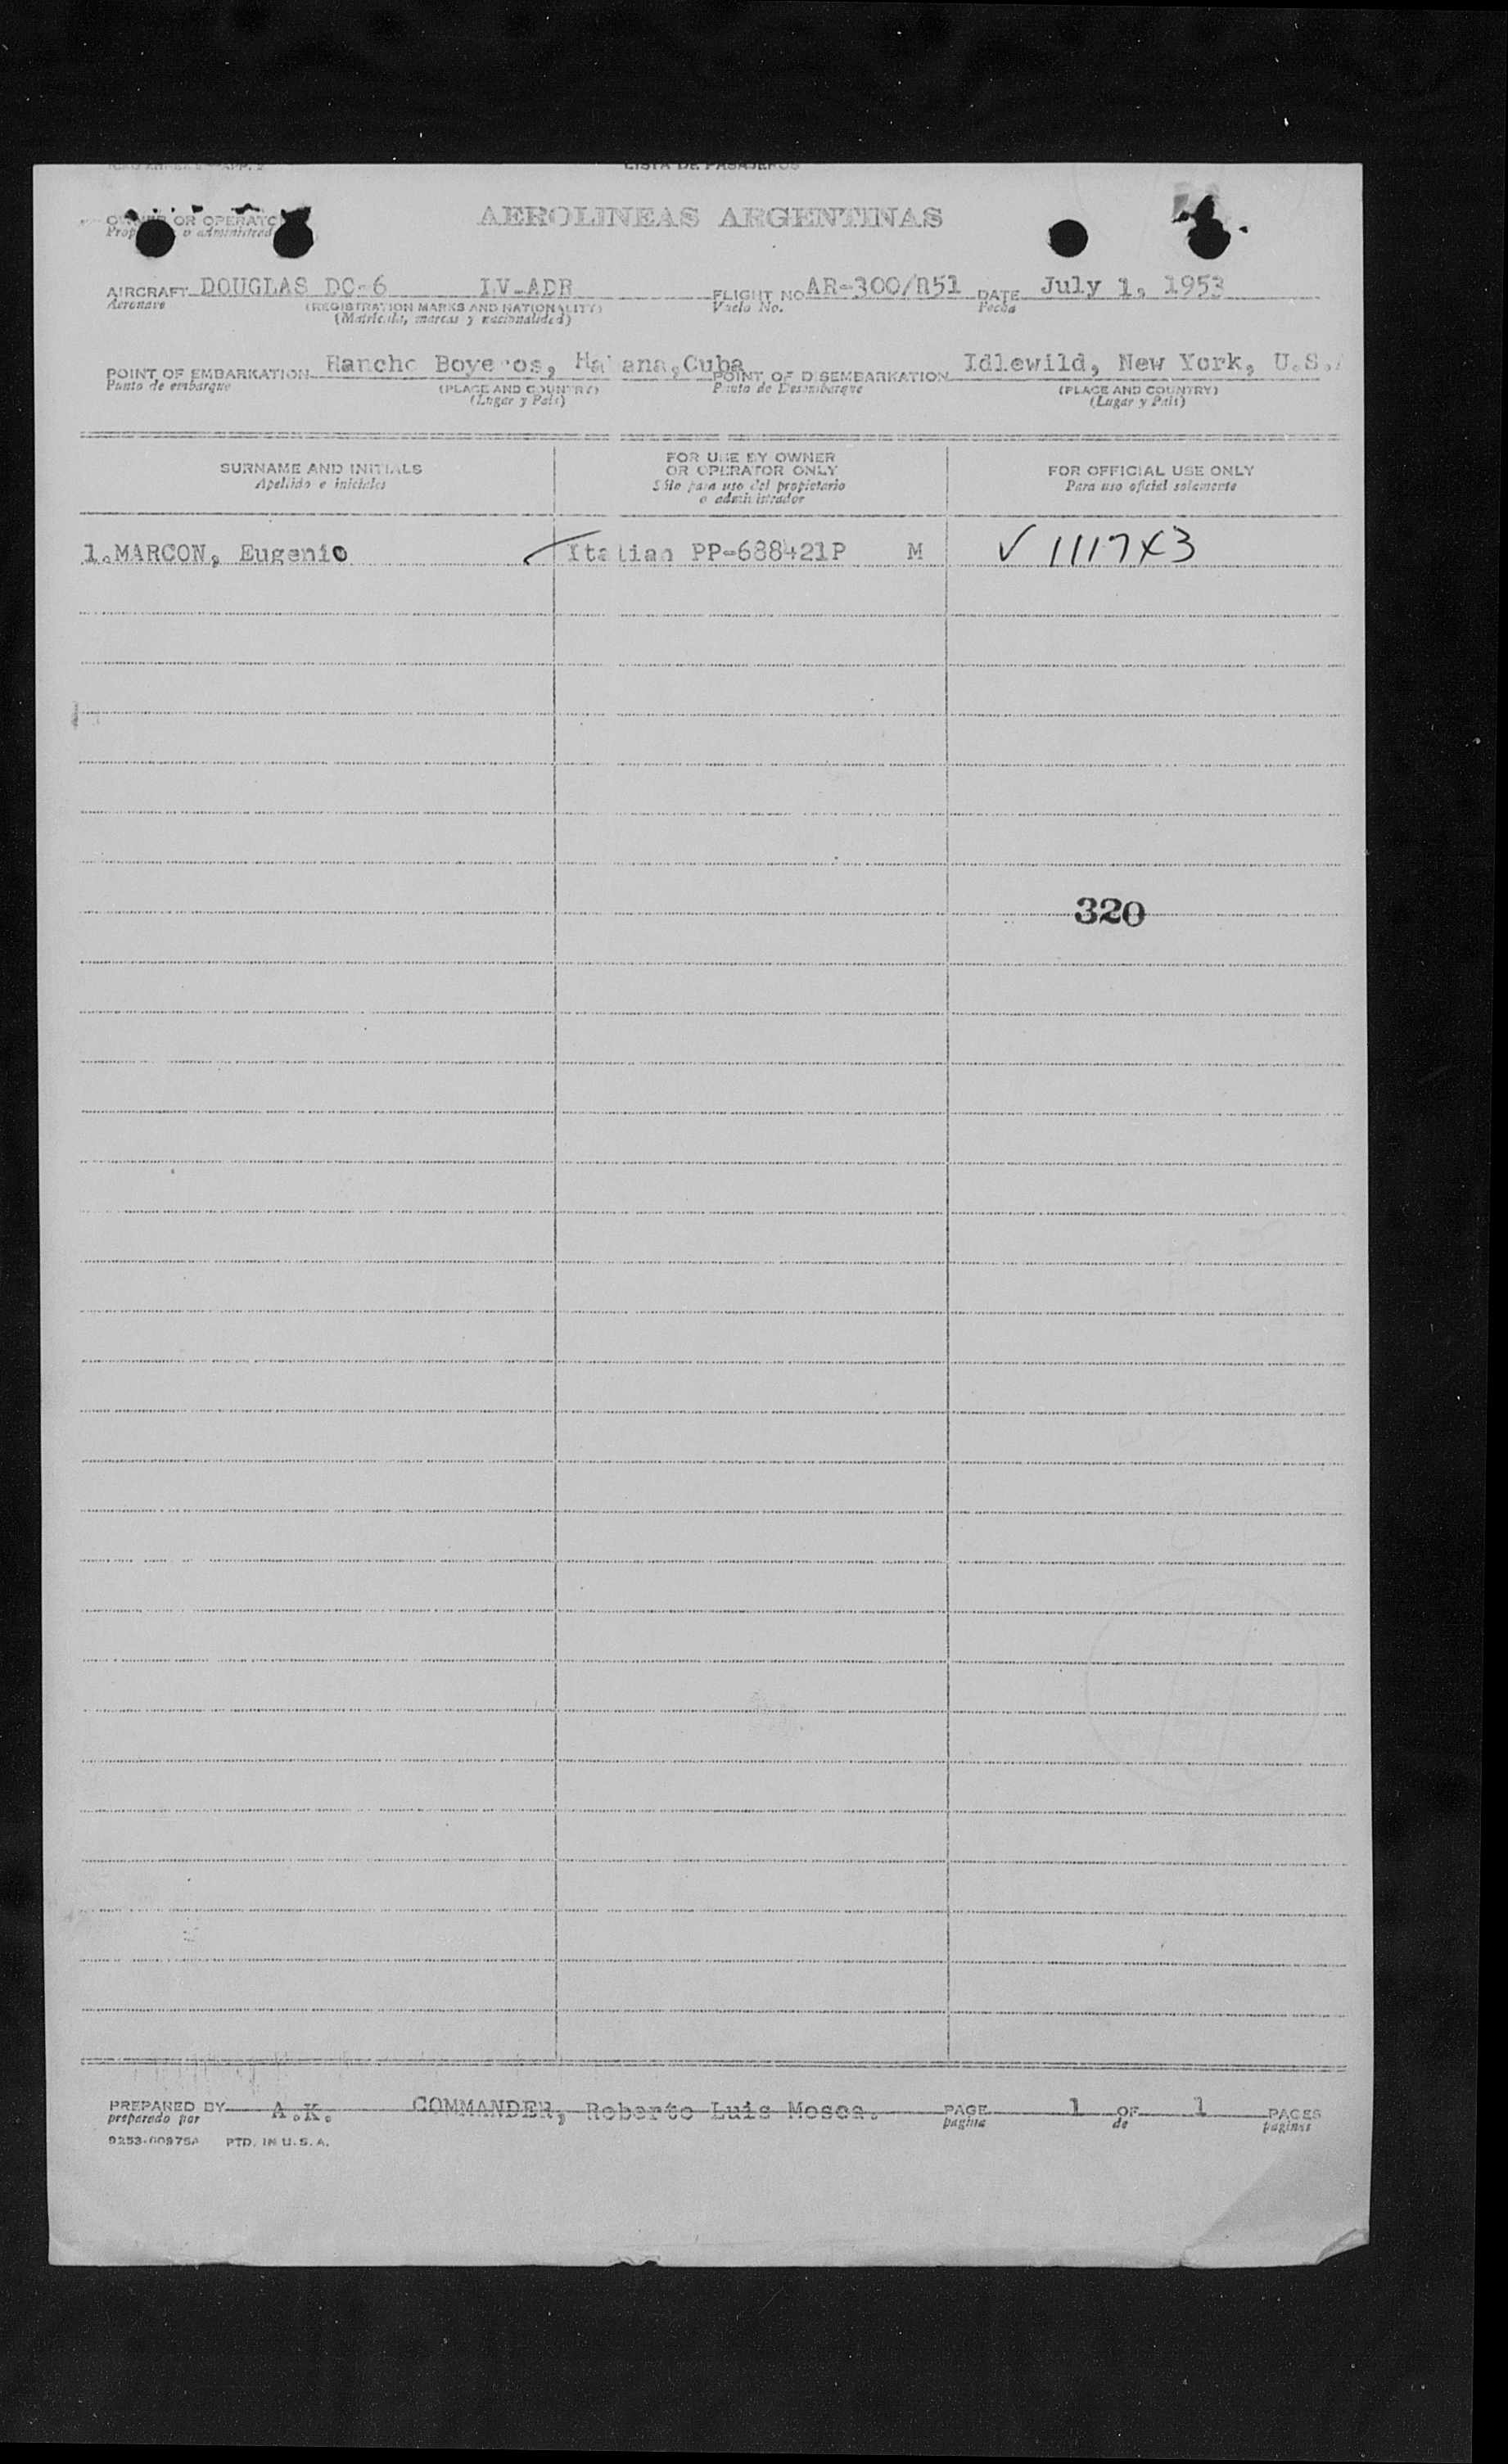 LISTA DE PASAJEROS
AEROLINEAS ARGENTINAS
OWNER OR OPERATO
Prop o administrad
AIRCRAFT DOUGLAS DC-6 LV-ADR FLIGHT NO AR-300/851 DATE July 1, 1953
Aeronave (REGISTRATION MARKS AND NATIONALITY) Vuelo No. Fecha
(Matrícula, marcas y nacionalidad)
POINT OF EMBARKATION Rancho Boyeros, Habana, Cuba POINT OF DISEMBARKATION Idlewild, New York, U.S.
Punto de embarque (PLACE AND COUNTRY) Punto de Desembarque (PLACE AND COUNTRY)
(Lugar y País) (Lugar y País)
SURNAME AND INITIALS
Apellido e iniciales
FOR USE BY OWNER
OR OPERATOR ONLY
Sólo para uso del propietario
o administrador
FOR OFFICIAL USE ONLY
Para uso oficial solamente
1.MARCON, Eugenio Italian PP-688421P M ✓ 1117X3
320
PREPARED BY A.K. COMMANDER, Roberto Luis Moses. PAGE 1 OF 1 PAGES
preparado por pagina de paginas
PTD. IN U.S.A.